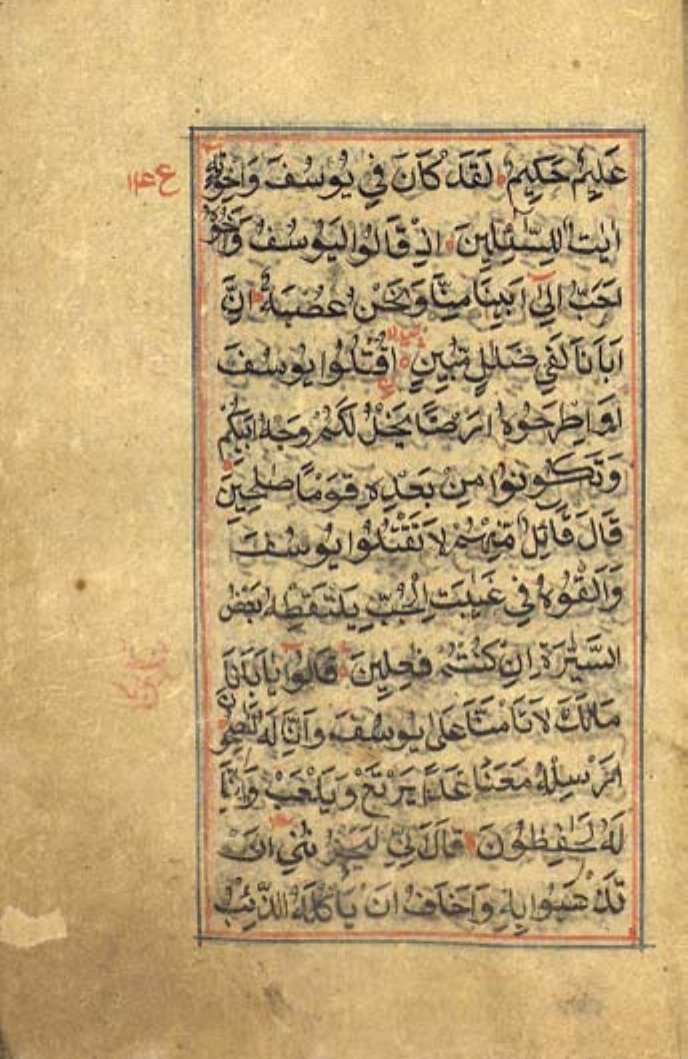 عَلِيمٌ حَكِيمٌ لَقَدْ كَانَ فِي يُوسُفَ وَاِخْوَتِهِ
اٰيٰتٌ لِلسَّٓائِلِينَ اِذْ قَالُوا لَيُوسُفُ وَاَخُوهُ
اَحَبُّ اِلٰٓى اَبِينَا مِنَّا وَنَحْنُ عُصْبَةٌ اِنَّ
اَبَانَا لَفِي ضَلٰلٍ مُبِينٍ اقْتُلُوا يُوسُفَ
اَوِ اطْرَحُوهُ اَرْضًا يَخْلُ لَكُمْ وَجْهُ اَبِيكُمْ
وَتَكُونُوا مِنْ بَعْدِهِ قَوْمًا صٰلِحِينَ
قَالَ قَائِلٌ مِنْهُمْ لَا تَقْتُلُوا يُوسُفَ
وَاَلْقُوهُ فِي غَيٰبَتِ الْجُبِّ يَلْتَقِطْهُ بَعْضُ
السَّيَّارَةِ اِنْ كُنْتُمْ فٰعِلِينَ قَالُوا يَا اَبَانَا
مَا لَكَ لَا تَاْمَنَّا عَلٰى يُوسُفَ وَاِنَّا لَهُ لَنٰصِحُونَ
اَرْسِلْهُ مَعَنَا غَدًا يَرْتَعْ وَيَلْعَبْ وَاِنَّا
لَهُ لَحٰفِظُونَ قَالَ اِنِّي لَيَحْزُنُنِي اَنْ
تَذْهَبُوا بِهِ وَاَخَافُ اَنْ يَاْكُلَهُ الذِّئْبُ